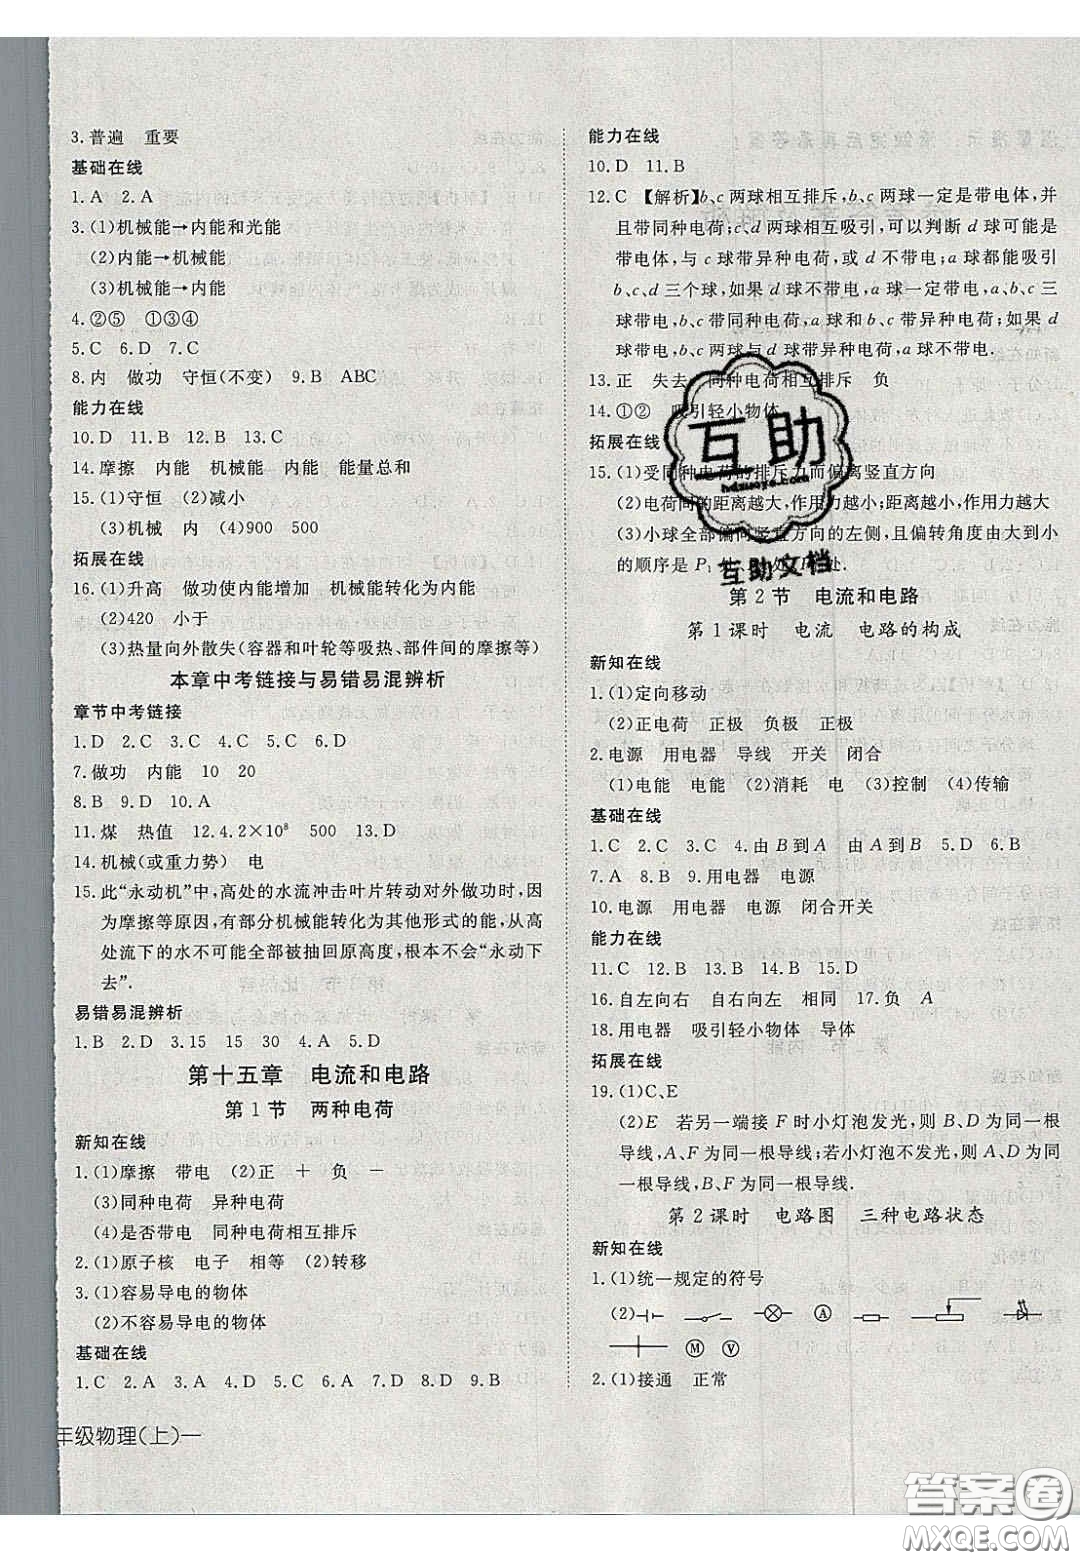 3.普遍 重要
基础在线
1.A 2.A
3.(1)机械能→内能和光能
(2)内能→机械能
(3)机械能→内能
4.②⑤ ①③④
5.C 6.D 7.C
8.内 做功 守恒(不变) 9.B ABC
能力在线
10.D 11.B 12.B 13.C
14.摩擦 内能 机械能 内能 能量总和
15.(1)守恒 (2)减小
(3)机械 内 (4)900 500
拓展在线
16.(1)升高 做功使内能增加 机械能转化为内能
(2)420 小于
(3)热量向外散失(容器和叶轮等吸热、部件间的摩擦等)
本章中考链接与易错易混辨析
章节中考链接
1.D 2.C 3.C 4.C 5.C 6.D
7.做功 内能 10 20
8.B 9.D 10.A
11.煤 热值 12.4.2×10⁸ 500 13.D
14.机械(或重力势) 电
15.此“永动机”中,高处的水流冲击叶片转动对外做功时,因
为摩擦等原因,有部分机械能转化为其他形式的能,从
高处流下的水不可能全部被抽回原高度,根本不会“永动下
去”.
易错易混辨析
1.B 2.D 3.15 15 30 4.A 5.D
第十五章 电流和电路
第1节 两种电荷
新知在线
1.(1)摩擦 带电 (2)正 + 负 -
(3)同种电荷 异种电荷
(4)是否带电 同种电荷相互排斥
2.(1)原子核 电子 相等 (2)转移
3.(1)容易导电的物体
(2)不容易导电的物体
基础在线
1.C 2.A 3.A 4.D 5.C 6.D 7.D 8.D 9.B
年级物理(上)一
能力在线
10.D 11.B
12.C 【解析】b、c两球相互排斥,b、c两球一定是带电体,并
且带同种电荷;c、d两球相互吸引,可以判断d球可能是
带电体,与c球带异种电荷,或d不带电;a球都能吸引
b、c、d三个球,如果d球不带电,a球一定带电,a、b、c三
球带电,b、c带同种电荷,a球和b、c带异种电荷;如果d
球带电,b、c两球与d球带异种电荷,a球不带电.
13.正 失去 同种电荷相互排斥 负
14.①② 吸引轻小物体
拓展在线
15.(1)受同种电荷的排斥力而偏离竖直方向
(2)电荷间的距离越大,作用力越小;距离越小,作用力越大
(3)小球全部偏向竖直方向的左侧,且偏转角度由大到小
的顺序是P₁处、 处、 处.
第2节 电流和电路
第1课时 电流 电路的构成
新知在线
1.(1)定向移动
(2)正电荷 正极 负极 正极
2.电源 用电器 导线 开关 闭合
(1)电能 电能 (2)消耗 电 (3)控制 (4)传输
基础在线
1.C 2.C 3.C 4.由B到A 由A到B 5.D 6.B
7.A 8.B 9.用电器 电源
10.电源 用电器 电源 闭合开关
能力在线
11.C 12.D 13.A 14.B 15.D
16.自左向右 自右向左 相同 17.负 A
18.用电器 吸引轻小物体 导体
拓展在线
19.(1)C、E
(2)E 若另一端接F时小灯泡发光,则B、D为同一根
导线,A、F为同一根导线;若小灯泡不发光,则A、D为同
一根导线,B、F为同一根导线.
第2课时 电路图 三种电路状态
新知在线
1.(1)统一规定的符号
(2) A
M V
2.(1)接通 正常
互助
hdzuoye.com
互助文档
答案圈
MXQE.COM